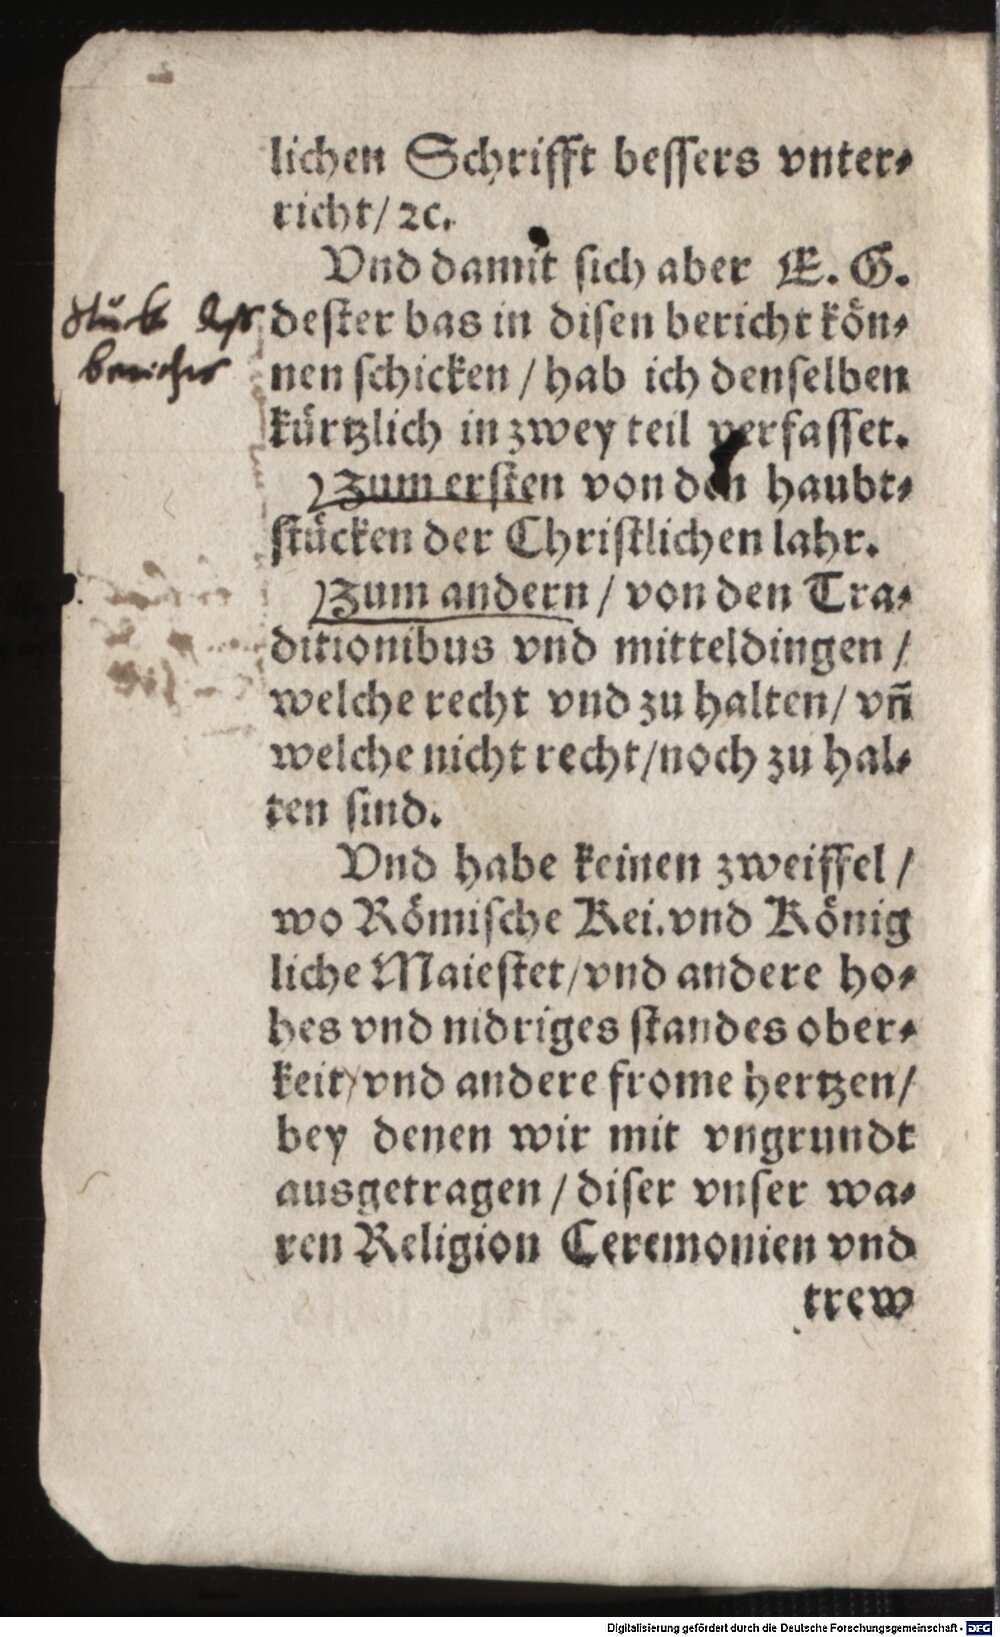 lichen Schrifft bessers vnter⸗
richt/ ꝛc.
Vnd damit sich aber E. G.
dester bas in disen bericht kön⸗
nen schicken / hab ich denselben
kürtzlich in zwey teil verfasset.
Zum ersten von den haubt⸗
stücken der Christlichen lahr.
Zum andern / von den Tra⸗
ditionibus vnd mitteldingen /
welche recht vnd zu halten/ vñ
welche nicht recht/noch zu hal⸗
ten sind.
Vnd habe keinen zweiffel /
wo Römische Kei. vnd König
liche Maiestet/vnd andere ho⸗
hes vnd nidriges standes ober⸗
keit/ vnd andere frome hertzen/
bey denen wir mit vngrundt
ausgetragen / diser vnser wa⸗
ren Religion Ceremonien vnd
trew
Digitalisierung gefördert durch die Deutsche Forschungsgemeinschaft - DFG